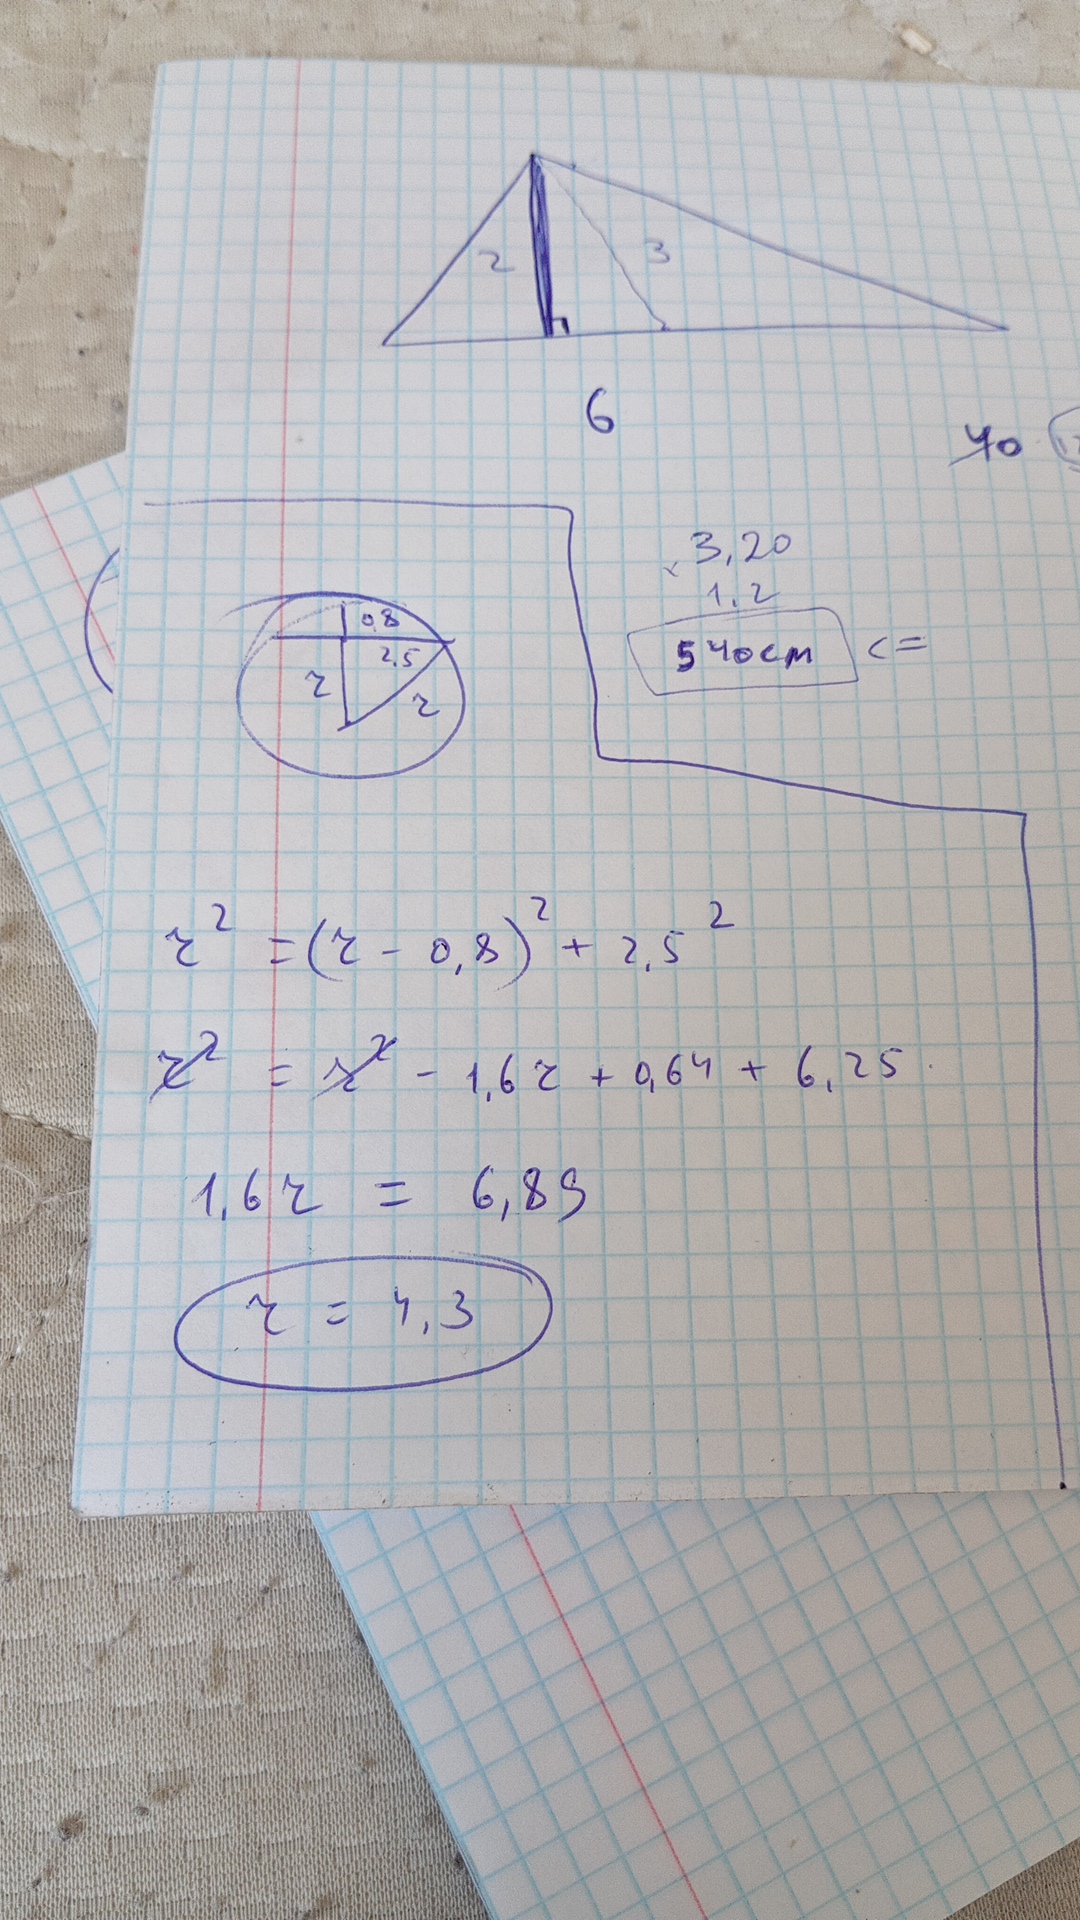 2
3
6
40
3,20
1,2
540cm <=
0,8
2,5
r
r
r² = (r - 0,8)² + 2,5²
r² = r² - 1,6r + 0,64 + 6,25
1,6r = 6,89
r = 4,3